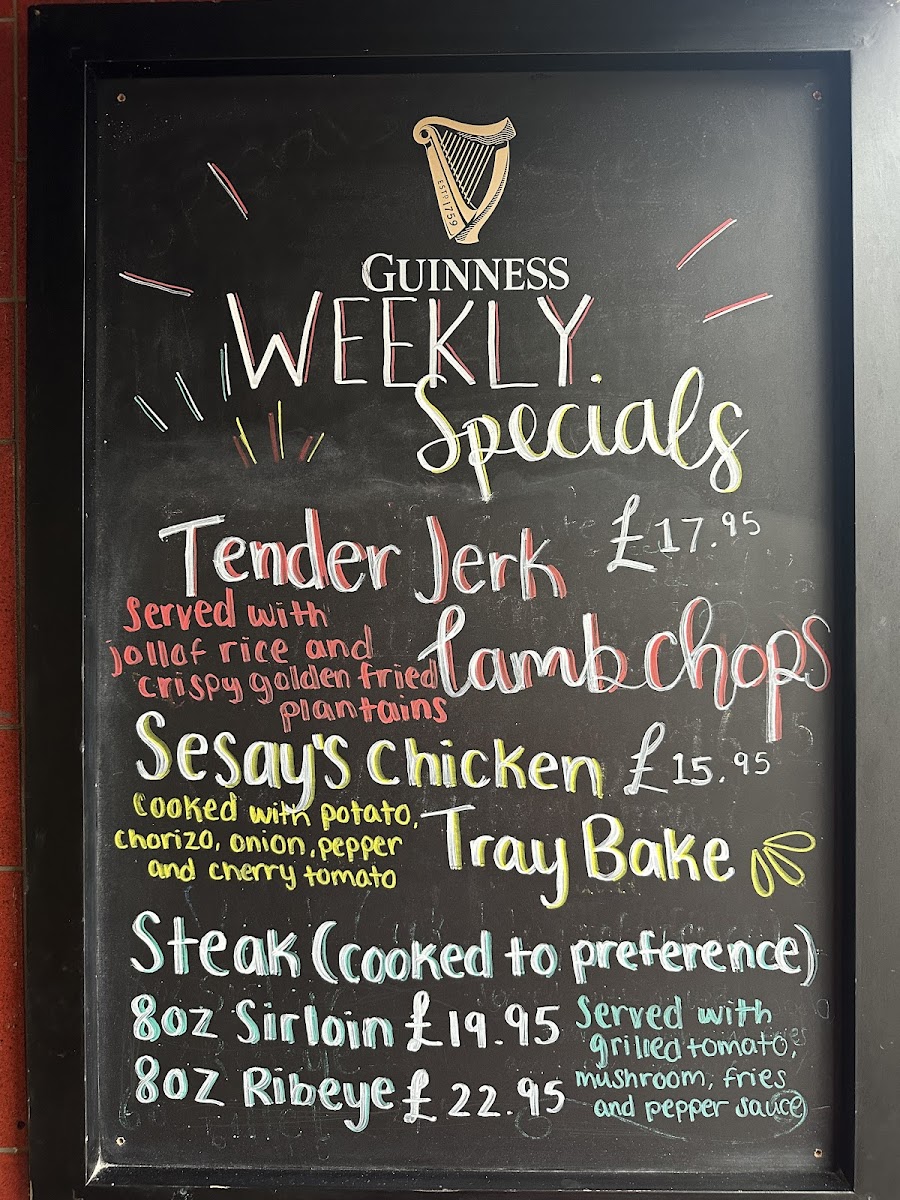 ESTD 1759
GUINNESS
WEEKLY
Specials
Tender Jerk £17.95
lamb chops
Served with
jollof rice and
crispy golden fried
plantains
Sesay's Chicken £15.95
Tray Bake
Cooked with potato,
chorizo, onion, pepper
and cherry tomato
Steak (cooked to preference)
8oz Sirloin £19.95
8oz Ribeye £22.95
Served with
grilled tomato,
mushroom, fries
and pepper sauce